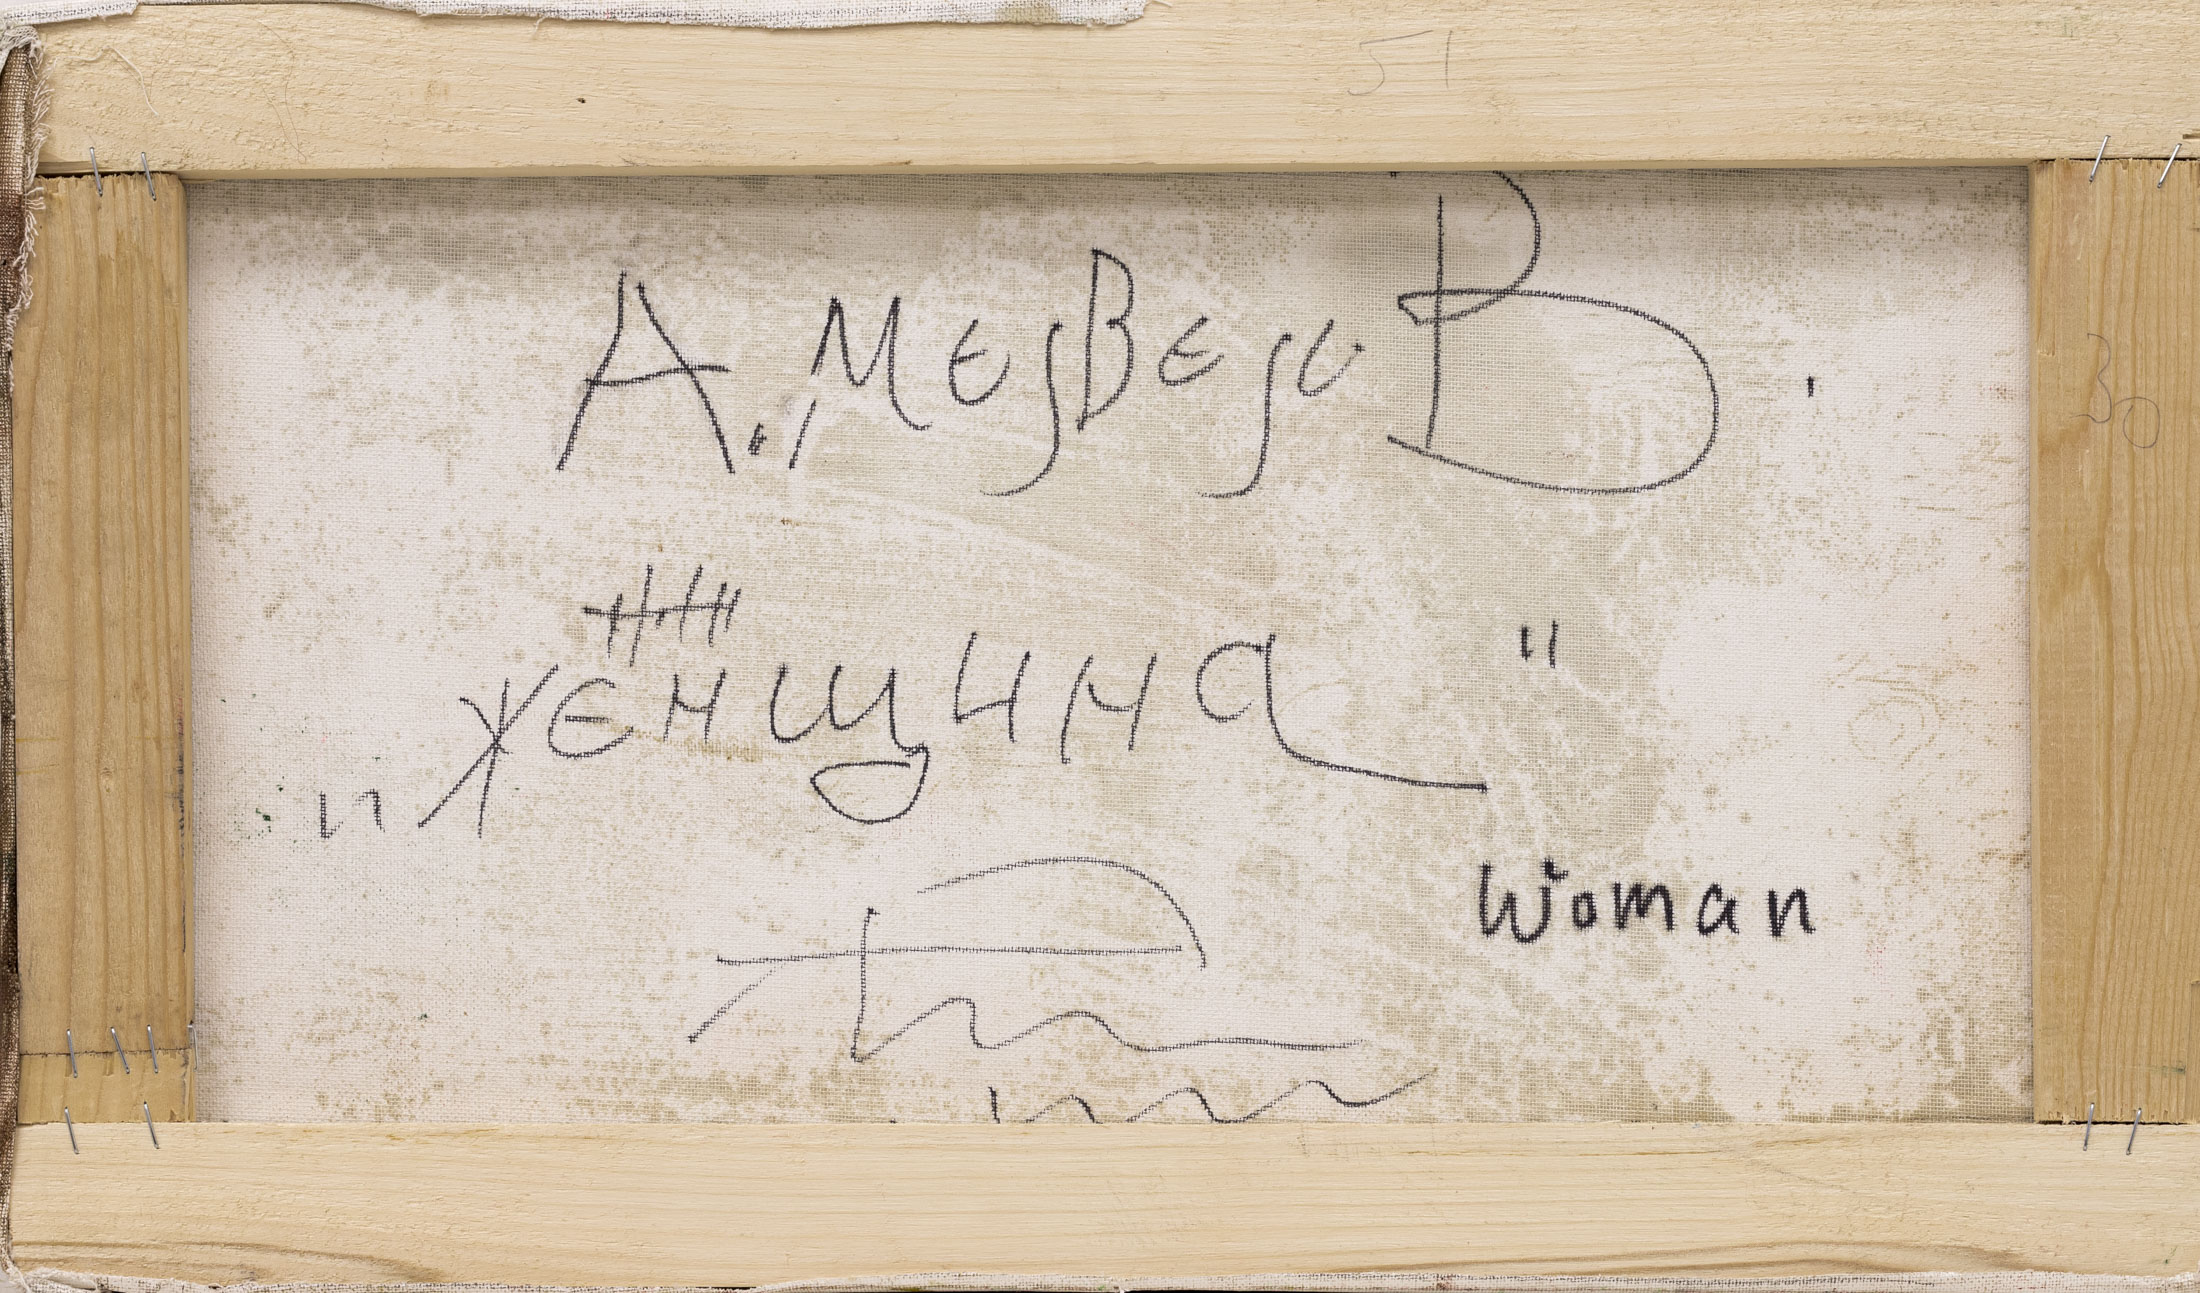 51
А. Медведев.
30
„Женщина"
Woman